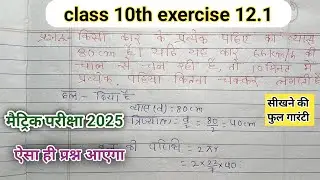 class 10th exercise 12.1
किसी कार के प्रत्येक पहिए का व्यास
80cm है। यदि यह कार 66km/h की
चाल से चल रही है, तो 10 मिनट में
प्रत्येक पहिया कितना चक्कर लगाती है
हल:- दिया है
व्यास(d) = 80cm
त्रिज्या = d/2 = 80/2 = 40cm
की परिधि = 2πr
= 2×22/7×40
मैट्रिक परीक्षा 2025
ऐसा ही प्रश्न आएगा
सीखने की
फुल गारंटी